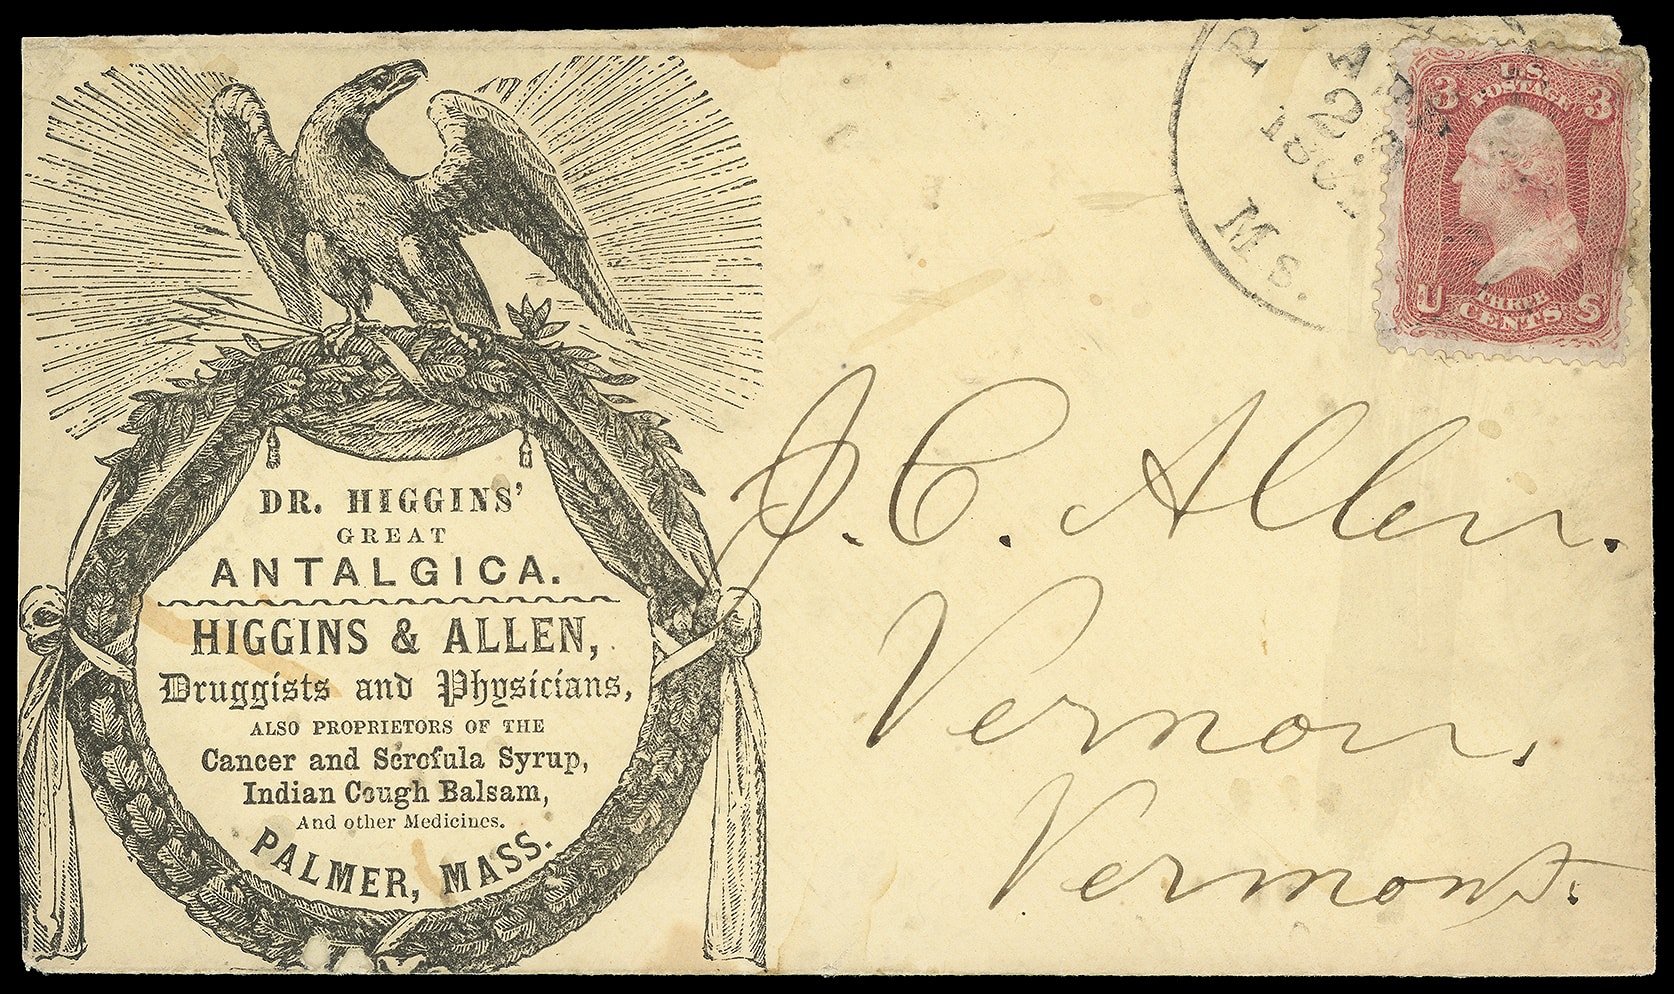 DR. HIGGINS'
GREAT
ANTALGICA.
HIGGINS & ALLEN,
Druggists and Physicians,
ALSO PROPRIETORS OF THE
Cancer and Scrofula Syrup,
Indian Cough Balsam,
And other Medicines.
PALMER, MASS.
Ms.
3 U.S. 3
POSTAGE
U THREE S
CENTS
J. C. Allen.
Vernon,
Vermont.